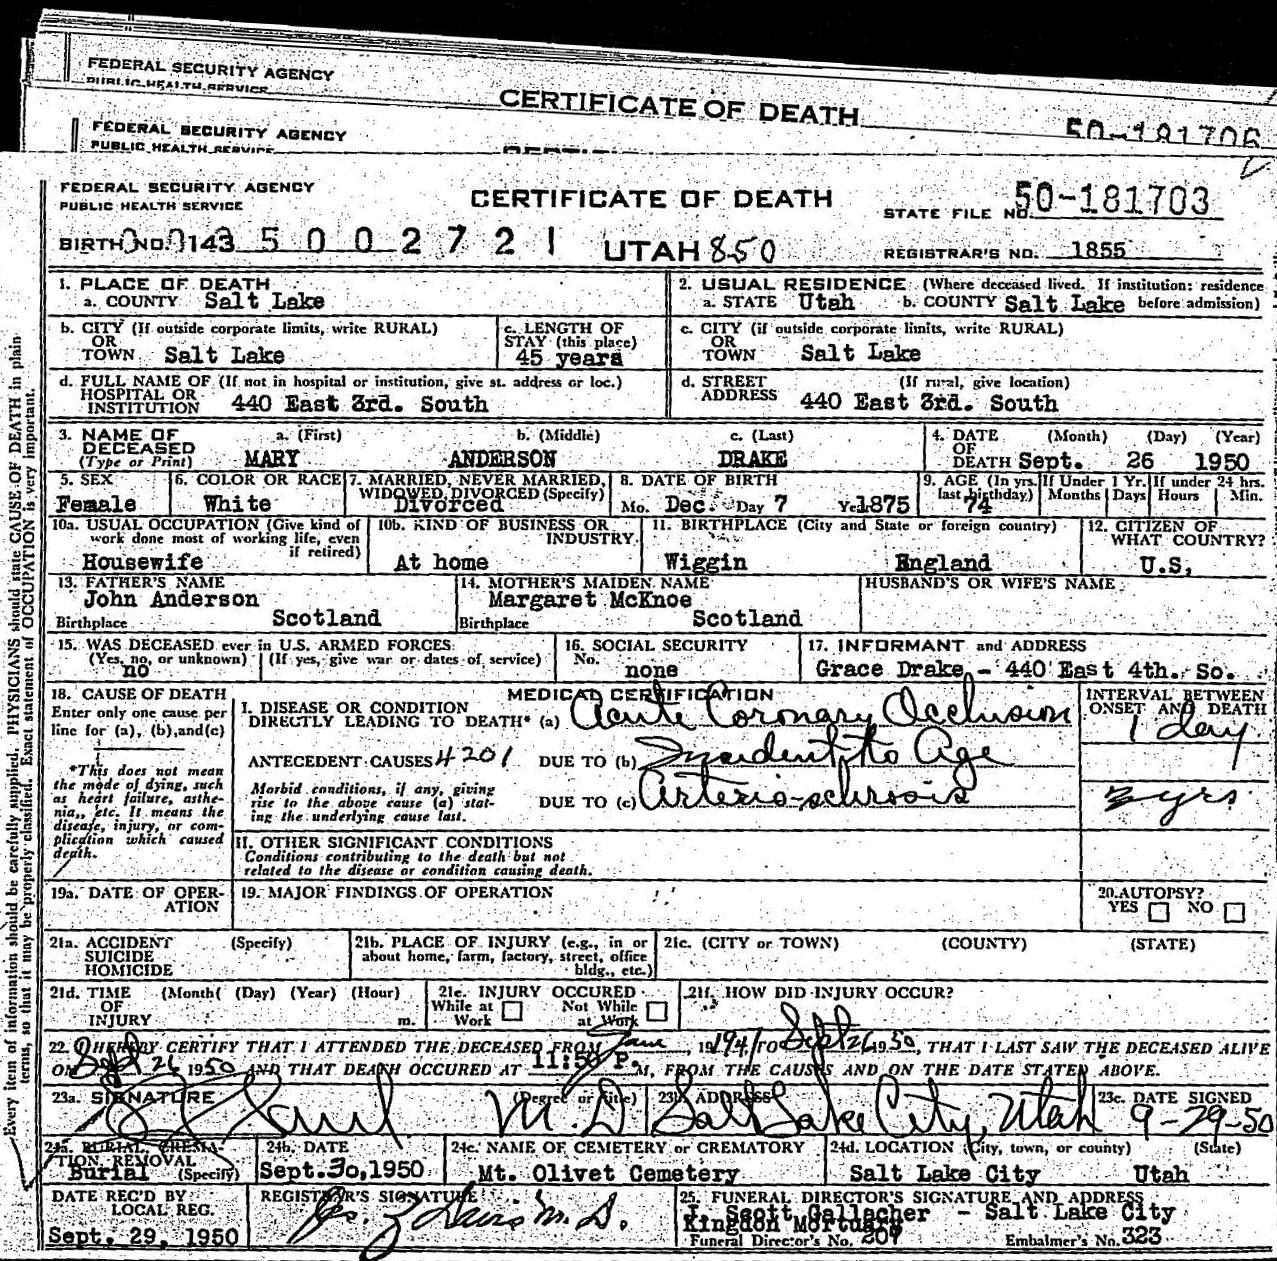 FEDERAL SECURITY AGENCY
PUBLIC HEALTH SERVICE
CERTIFICATE OF DEATH
50-181706
FEDERAL SECURITY AGENCY
PUBLIC HEALTH SERVICE
FEDERAL SECURITY AGENCY
PUBLIC HEALTH SERVICE
CERTIFICATE OF DEATH
STATE FILE NO. 50-181703
BIRTH NO. 143 5002721
UTAH 850
REGISTRAR'S NO. 1855
1. PLACE OF DEATH
a. COUNTY Salt Lake
2. USUAL RESIDENCE (Where deceased lived. If institution: residence
a. STATE Utah b. COUNTY Salt Lake before admission)
b. CITY (If outside corporate limits, write RURAL)
OR
TOWN Salt Lake
c. LENGTH OF
STAY (this place)
45 years
c. CITY (if outside corporate limits, write RURAL)
OR
TOWN Salt Lake
d. FULL NAME OF (If not in hospital or institution, give st. address or loc.)
HOSPITAL OR
INSTITUTION 440 East 3rd. South
d. STREET (If rural, give location)
ADDRESS 440 East 3rd. South
3. NAME OF a. (First) b. (Middle) c. (Last)
DECEASED
(Type or Print) MARY ANDERSON DRAKE
4. DATE (Month) (Day) (Year)
OF
DEATH Sept. 26 1950
5. SEX
Female
6. COLOR OR RACE
White
7. MARRIED, NEVER MARRIED,
WIDOWED, DIVORCED (Specify)
Divorced
8. DATE OF BIRTH
Mo. Dec. Day 7 Yr. 1875
9. AGE (In yrs. If Under 1 Yr. If under 24 hrs.
last birthday) Months Days Hours Min.
74
10a. USUAL OCCUPATION (Give kind of
work done most of working life, even
if retired)
Housewife
10b. KIND OF BUSINESS OR
INDUSTRY.
At home
11. BIRTHPLACE (City and State or foreign country)
Wiggin England
12. CITIZEN OF
WHAT COUNTRY?
U.S.
13. FATHER'S NAME
John Anderson
Birthplace Scotland
14. MOTHER'S MAIDEN NAME
Margaret McKnoe
Birthplace Scotland
HUSBAND'S OR WIFE'S NAME
15. WAS DECEASED ever in U.S. ARMED FORCES
(Yes, no, or unknown) (If yes, give war or dates of service)
no
16. SOCIAL SECURITY
No. none
17. INFORMANT and ADDRESS
Grace Drake - 440 East 4th. So.
18. CAUSE OF DEATH
Enter only one cause per
line for (a), (b), and (c)
*This does not mean
the mode of dying, such
as heart failure, asthe-
nia,, etc. It means the
disease, injury, or com-
plication which caused
death.
MEDICAL CERTIFICATION
I. DISEASE OR CONDITION
DIRECTLY LEADING TO DEATH* (a) Acute Coronary Occlusion
ANTECEDENT CAUSES 4201 DUE TO (b) Incident to Age
Morbid conditions, if any, giving
rise to the above cause (a) stat-
ing the underlying cause last.
DUE TO (c) Arterio-sclrsois
INTERVAL BETWEEN
ONSET AND DEATH
1 day
3 yrs.
II. OTHER SIGNIFICANT CONDITIONS
Conditions contributing to the death but not
related to the disease or condition causing death.
19a. DATE OF OPER-
ATION
19. MAJOR FINDINGS OF OPERATION
20. AUTOPSY?
YES NO
21a. ACCIDENT (Specify)
SUICIDE
HOMICIDE
21b. PLACE OF INJURY (e.g., in or
about home, farm, factory, street, office
bldg., etc.)
21c. (CITY or TOWN) (COUNTY) (STATE)
21d. TIME (Month( (Day) (Year) (Hour)
OF
INJURY m.
21e. INJURY OCCURED
While at Work Not While at Work
21f. HOW DID INJURY OCCUR?
22. I HEREBY CERTIFY THAT I ATTENDED THE DECEASED FROM June, 1941 TO Sept 26 1950, THAT I LAST SAW THE DECEASED ALIVE
ON Sept 26 1950 AND THAT DEATH OCCURED AT 11:50 P. M, FROM THE CAUSES AND ON THE DATE STATED ABOVE.
23a. SIGNATURE (Degree or title) M.D.
23b. ADDRESS Salt Lake City, Utah
23c. DATE SIGNED
9-29-50
24a. BURIAL, CREMA-
TION, REMOVAL
Burial (Specify)
24b. DATE
Sept. 30, 1950
24c. NAME OF CEMETERY or CREMATORY
Mt. Olivet Cemetery
24d. LOCATION (City, town, or county) (State)
Salt Lake City Utah
DATE REC'D BY
LOCAL REG.
Sept. 29, 1950
REGISTRAR'S SIGNATURE
M.D.
25. FUNERAL DIRECTOR'S SIGNATURE AND ADDRESS
J. Scott Gallacher - Salt Lake City
Kingdon Mortuary
Funeral Director's No. 207 Embalmer's No. 323
Every item of information should be carefully supplied. PHYSICIANS should state CAUSE OF DEATH in plain
terms, so that it may be properly classified. Exact statement of OCCUPATION is very important.